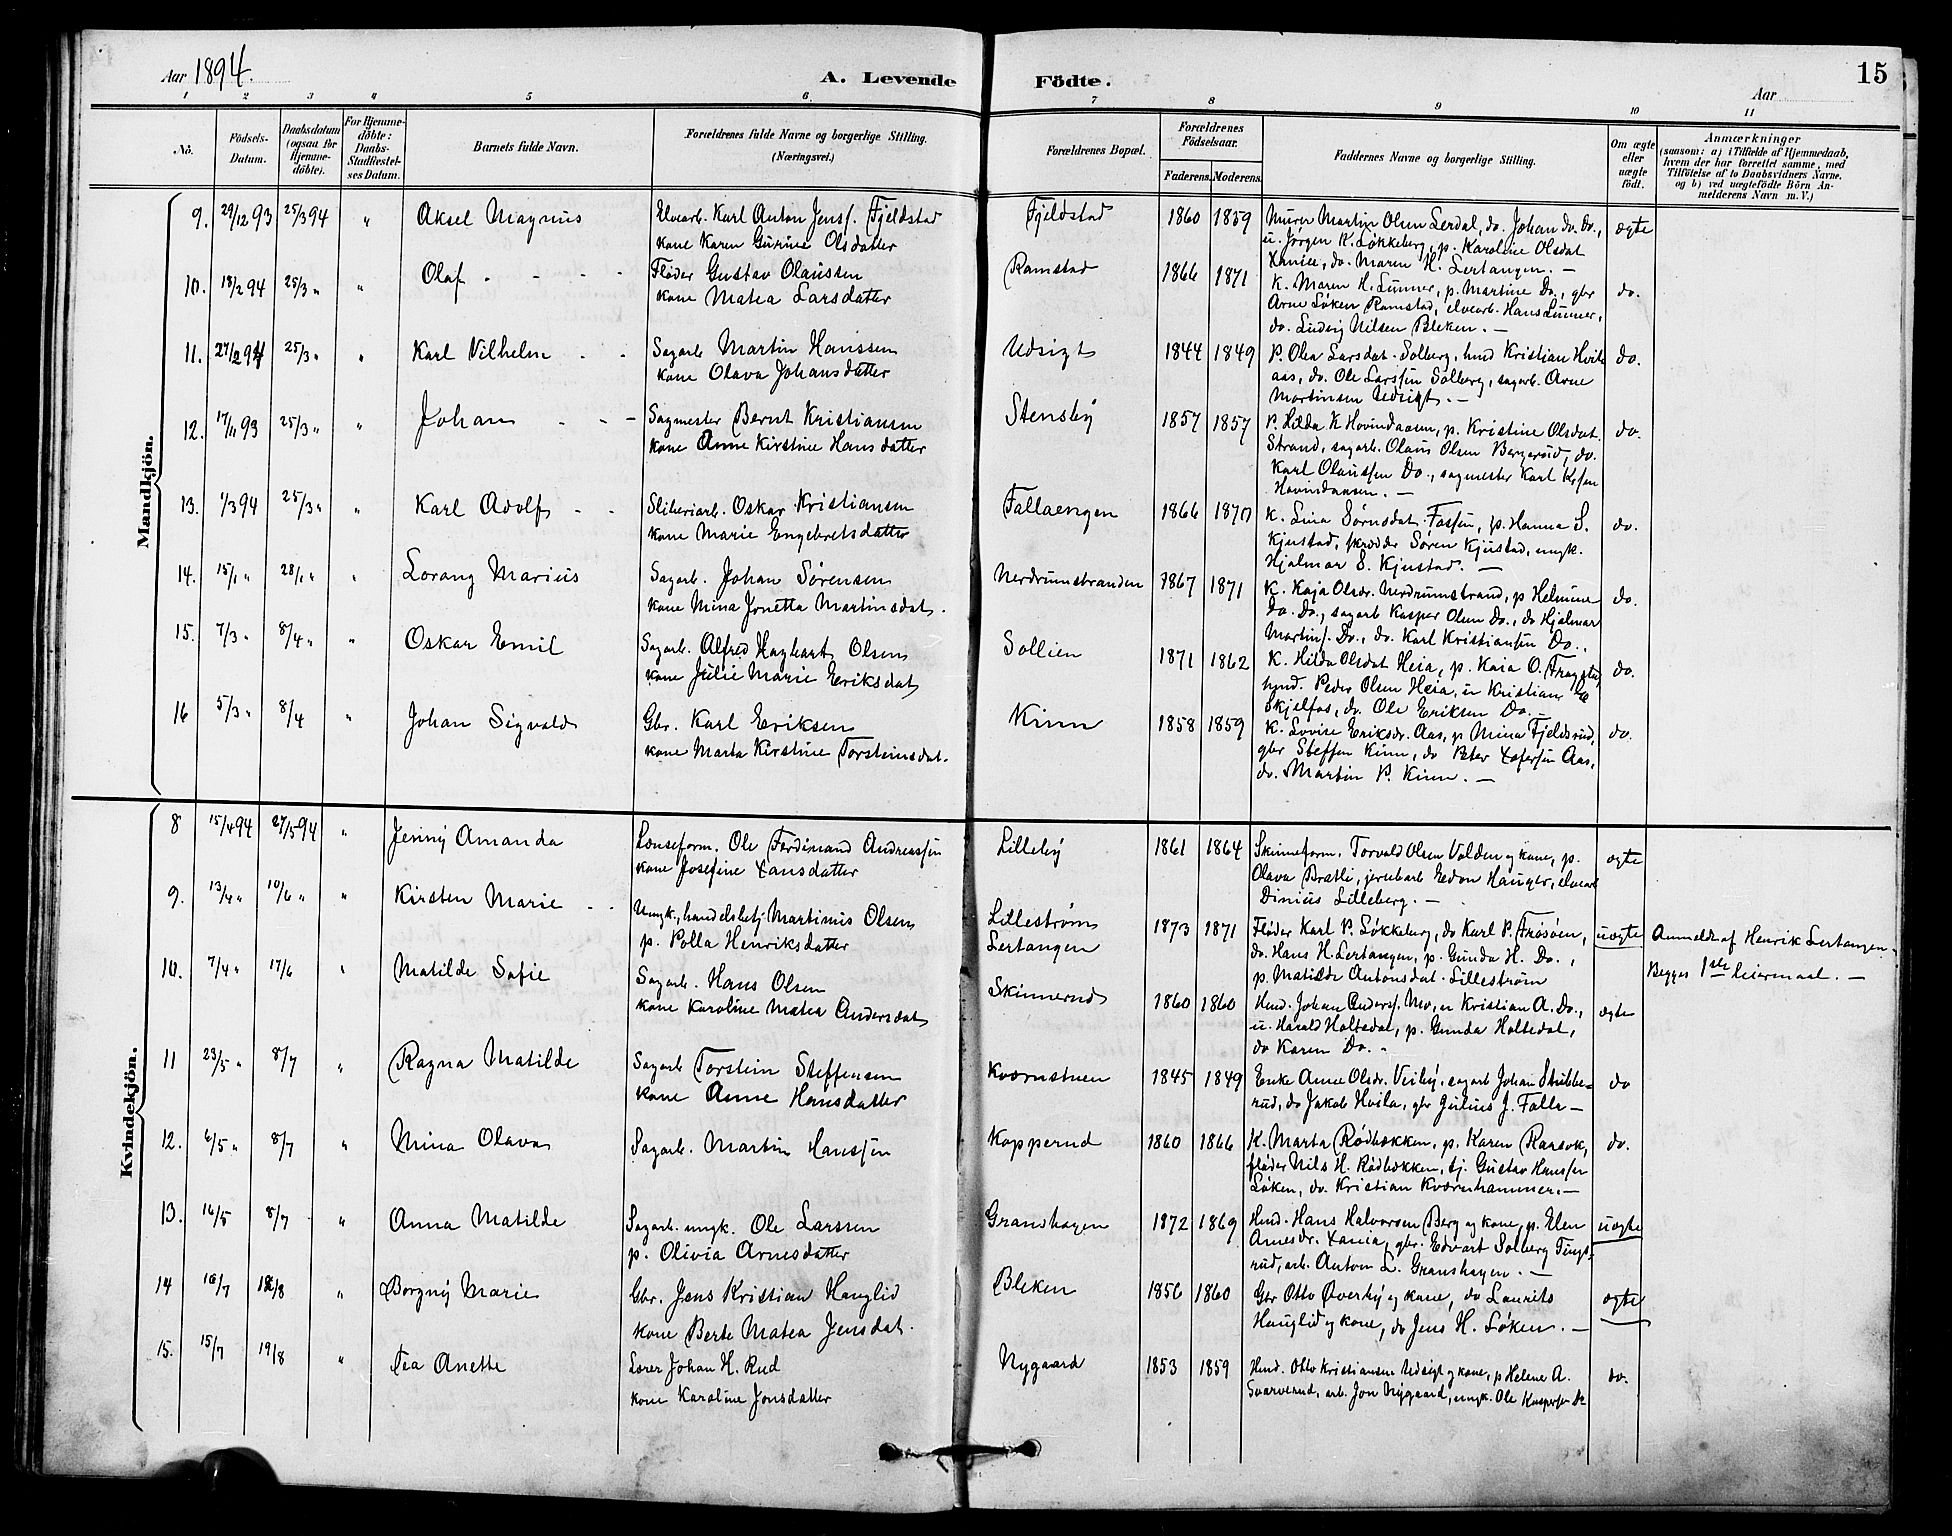 Aar 1894.
A. Levende Födte.
Aar
15
1 2 3 4 5 6. 7 8 9 10 11
No.
Födsels-Datum.
Daabsdatum (ogsaa for Hjemme-döbte).
For Hjemme-döbte: Daabs-Stadfæstel-ses Datum.
Barnets fulde Navn.
Forældrenes fulde Navne og borgerlige Stilling. (Næringsvei.)
Forældrenes Bopæl.
Forældrenes Födselsaar.
Faderens. Moderens.
Faddernes Navne og borgerlige Stilling.
Om ægte eller uægte födt.
Anmærkninger
(saasom: a) i Tilfælde af Hjemmedaab, hvem der har forrettet samme, med Tilföielse af to Daabsvidners Navne, og b) ved uægtefödte Börn An-melderens Navn m. V.)
Mandkjön.
9. 29/12 93 25/3 94 " Aksel Magnus
Elvearb. Karl Anton Jensf. Fjeldstad
kone Karen Gurine Olsdatter
Fjeldstad 1860 1859
Murer Martin Olsen Lerdal, do. Johan do. Do.,
u. Jørgen K. Løkkeberg, p. Karoline Olsdat
Xania, do. Maren H. Lertangen. —
ægte
10. 18/2 94 25/3 " " Olaf - - - -
Fløder Gustav Olaussen
kone Matea Larsdatter
Ramstad 1866 1871
K. Maren H. Lunner, p. Martine Do., gbr
Arne Løken Ramstad, elvearb. Hans Lunner,
do. Ludvig Nilsen Bleken. —
do.
11. 27/2 94 25/3 " " Karl Vilhelm - -
Sagarb Martin Hanssen
kone Olava Johansdatter
Udsigt 1844 1849
P. Olea Larsdat. Solberg, hmd Kristian Hvile
aas, do. Ole Larssen Solberg, sagarb. Arne
Martinsen Udsigt. —
do.
12. 17/11 93 25/3 " " Johan - - -
Sagmester Bernt Kristiansen
kone Anne Kirstine Hansdatter
Stensby 1857 1857
P. Hilda K Hovindaasen, p. Kristine Olsdat.
Strand, sagarb. Olaus Olsen Bergerud, do.
Karl Olaussen Do., sagmester Karl Krsen
Hovindaasen. —
do.
13. 1/3 94 25/3 " " Karl Adolf - -
Sliberiarb. Oskar Kristiansen
kone Marie Engebretsdatter
Fallaengen 1866 1870
K. Lina Sørnsdat. Fossen, p. Hanna S.
Kjustad, skrædder Søren Kjustad, ungk.
Hjalmar S. Kjustad. —
do.
14. 15/1 " 28/1 " " Lorang Marius
Sagarb. Johan Sørensen
kone Mina Jonetta Martinsdat.
Nerdrumstranden 1867 1871
K. Kaja Olsdr. Nerdrumstrand, p Helmine
Do. Do., sagarb Kasper Olsen Do., do Hjalmar
Martinf. Do., do. Karl Kristiansen Do.
do.
15. 7/3 " 8/4 " " Oskar Emil
Sagarb. Alfred Hagbart Olsen
kone Julie Marie Eriksdat
Sollien 1871 1862
K. Hilda Olsdat Heia, p. Kaia O.
hmd. Peder Olsen Heia, u Kristian E
Skjelfos, do. Ole Eriksen Do. —
do.
16 5/3 " 8/4 " Johan Sigvald
Gbr. Karl Eriksen
kone Marta Kirstine Torsteinsdat.
Kinn 1858 1859
K. Lovise Eriksdr. Aas, p. Mina Fjeldsrud,
gbr Steffen Kinn, do Peter Xofersen Aas,
do. Martin P. Kinn. —
do.
Kvindekjön.
8 15/4 94 27/5 94 " Jenny Amanda
Lenseform. Ole Ferdinand Andreassen
kone Josefine Xansdatter
Lilleby 1861 1864
Skinneform. Torvald Olsen Volden og kone, p.
Olava Bratli, jernbarb Edvn Hauger, elvearb
Dinius Lilleberg. —
ægte
9. 13/4 " 10/6 " " Kirsten Marie - -
Ungk., handelsbetj. Martinus Olsen
p. Polla Henriksdatter
Lillestrøm
Lertangen
1873 1871
Fløder Karl P. Løkkeberg, do Karl P. Frøsøen,
do. Hans H. Lertangen, p. Gunda H. Do.,
p. Matilde Antonsdat. Lillestrøm
uægte
Anmeldt af Henrik Lertangen.
Begges 1ste leiermaal. —
10. 7/4 " 17/6 " Matilde Sofie
Sagarb. Hans Olsen
kone Karoline Matea Andersdat
Skinnerud 1860 1860
Hmd. Johan Andersf. Mo, u Kristian A. Do.,
u. Harald Holtedal, p. Gunda Holtedal,
do Karen Do. -
ægte
11 23/5 " 8/7 " Ragna Matilde
Sagarb Torstein Steffensen
kone Anne Hansdatter
Kværnstuen 1845 1849
Enke Anne Olsdr. Viiby, sagarb Johan Stubbe-
rud, do Jakob Hvila, gbr Julius J. Falla —
do
12. 6/5 " 8/7 " Mina Olava
Sagarb. Martin Hanssen
Kopperud 1860 1866
K. Marta Rødbækken, p. Karen Raasok,
fløder Nils H. Rødbækken, tj. Gustav Hanssen
Løken, do. Kristian Kværnhammer. —
do.
13. 16/5 8/7 " Anna Matilde
Sagarb. ungk. Ole Larssen
p. Olivia Arnesdatter
Granshagen 1872 1869
Hmd. Hans Halvorsen Berg og kone, p. Elen
Arnesdr. Xania, gbr. Edvart Solberg Tings-
rud, arb. Anton L. Granshagen. —
uægte
14 16/7 12/8 " Borgny Marie
Gbr. Jens Kristian Hauglid
kone Berte Matea Jensdat.
Bleken 1856 1860
Gbr Otto Øverby og kone, do Laurits
Hauglid og kone, do Jens H. Løken. —
ægte
15. 15/7 19/8 " Tea Anette
Lærer Johan H. Rud
kone Karoline Jonsdatter
Nygaard 1853 1859
Hmd. Otto Kristiansen Udsigt og kone, p Helene A.
Svarverud, arb. Jon Nygaard, ungk. Ole Kaspersen Do
do.